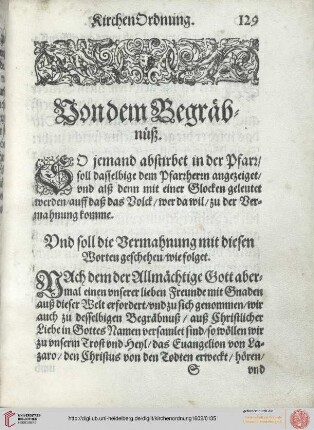 KirchenOrdnung. 129
Von dem Begräb-
nüß.
SO jemand abstirbet in der Pfarr/
soll dasselbige dem Pfarrherrn angezeiget/
vnd alß denn mit einer Glocken geleutet
werden/auff daß das Volck/wer da wil/zu der Ver-
mahnung komme.
Vnd soll die Vermahnung mit diesen
Worten geschehen/wie folget.
NAch dem der Allmächtige Gott aber-
mal einen vnserer lieben Freunde mit Gnaden
auß dieser Welt erfordert/vnd zu sich genommen/wir
auch zu desselbigen Begräbnuß/auß Christlicher
Liebe in Gottes Namen versamlet sind/so wöllen wir
zu vnserm Trost vnd Heyl/das Euangelion von La-
zaro/den Christus von den Todten erweckt/hören/
S vnd
http://digi.ub.uni-heidelberg.de/diglit/kirchenordnung1609/0135